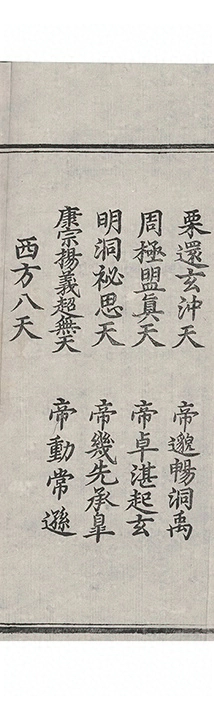 栗還玄沖天　帝邈暢洞禹
周極盟眞天　帝卓湛起玄
明洞祕思天　帝幾先承皐
康宗揚義超無天　帝動常遜
西方八天